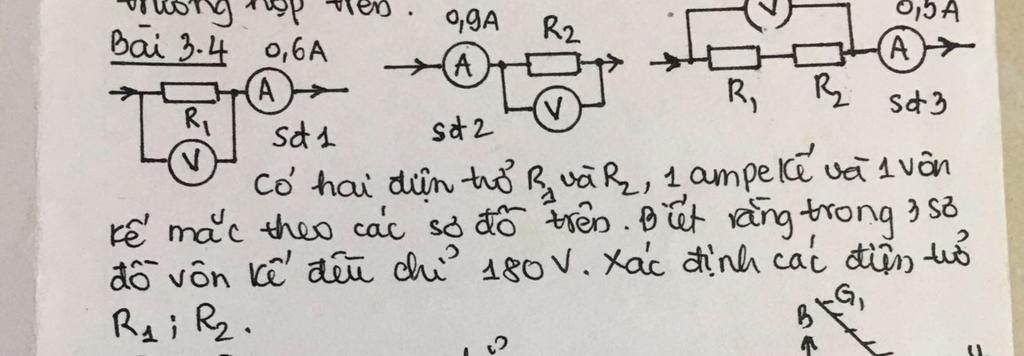 trường hợp trên.
Bài 3.4
0,6A
R1
A
V
Sđ1
0,9A
A
R2
V
Sđ2
V
R1
R2
0,5A
A
Sđ3
Có hai điện trở R1 và R2, 1 ampe kế và 1 vôn
kế mắc theo các sơ đồ trên. Biết rằng trong 3 sơ
đồ vôn kế đều chỉ 180V. Xác định các điện trở
R1; R2.
B
G1